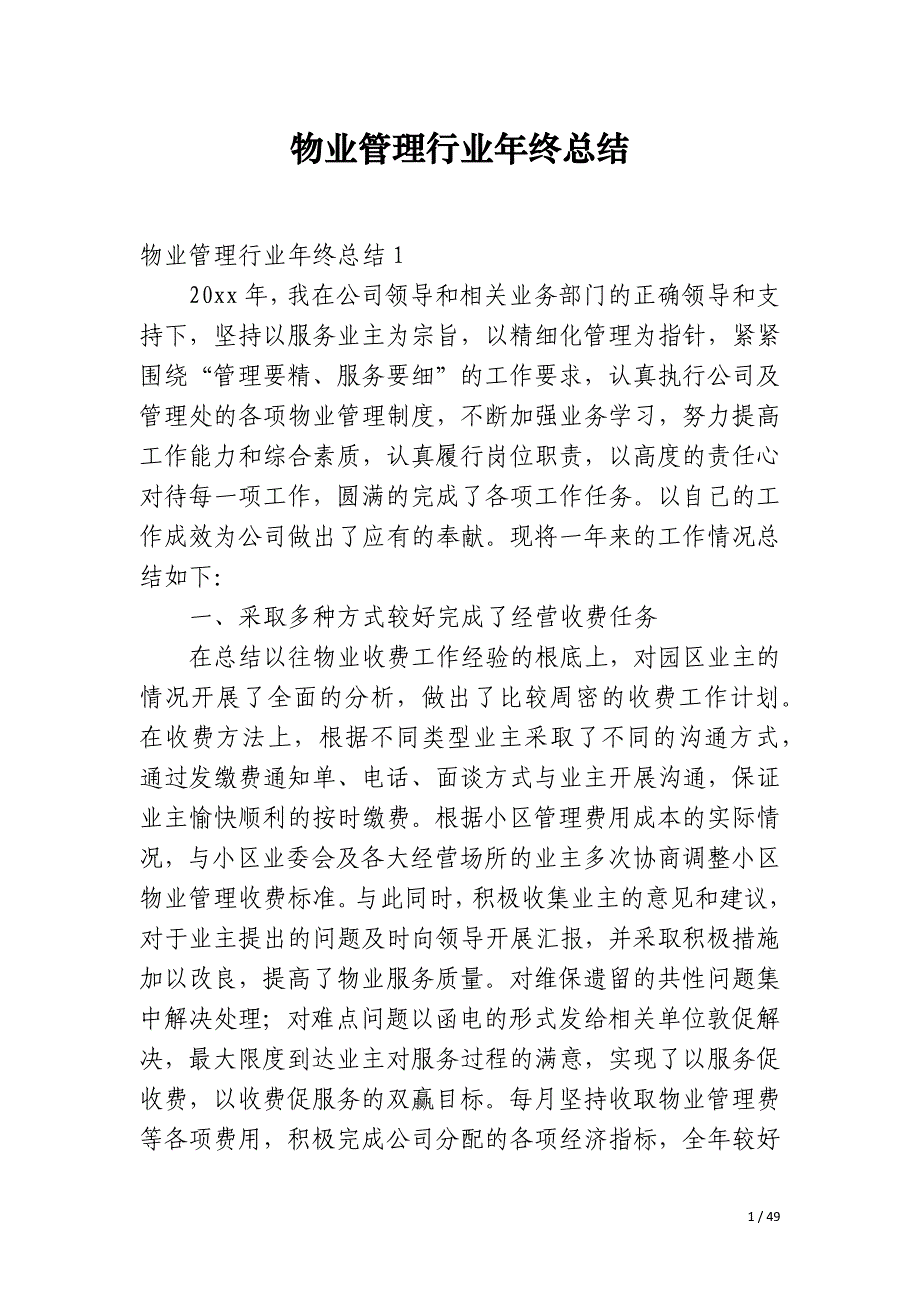 物业管理行业年终总结
物业管理行业年终总结 1
20xx 年，我在公司领导和相关业务部门的正确领导和支
持下，坚持以服务业主为宗旨，以精细化管理为指针，紧紧
围绕“管理要精、服务要细”的工作要求，认真执行公司及
管理处的各项物业管理制度，不断加强业务学习，努力提高
工作能力和综合素质，认真履行岗位职责，以高度的责任心
对待每一项工作，圆满的完成了各项工作任务。以自己的工
作成效为公司做出了应有的奉献。现将一年来的工作情况总
结如下：
一、采取多种方式较好完成了经营收费任务
在总结以往物业收费工作经验的根底上，对园区业主的
情况开展了全面的分析，做出了比较周密的收费工作计划。
在收费方法上，根据不同类型业主采取了不同的沟通方式，
通过发缴费通知单、电话、面谈方式与业主开展沟通，保证
业主愉快顺利的按时缴费。根据小区管理费用成本的实际情
况，与小区业委会及各大经营场所的业主多次协商调整小区
物业管理收费标准。与此同时，积极收集业主的意见和建议，
对于业主提出的问题及时向领导开展汇报，并采取积极措施
加以改良，提高了物业服务质量。对维保遗留的共性问题集
中解决处理；对难点问题以函电的形式发给相关单位敦促解
决，最大限度到达业主对服务过程的满意，实现了以服务促
收费，以收费促服务的双赢目标。每月坚持收取物业管理费
等各项费用，积极完成公司分配的各项经济指标，全年较好
1 / 49